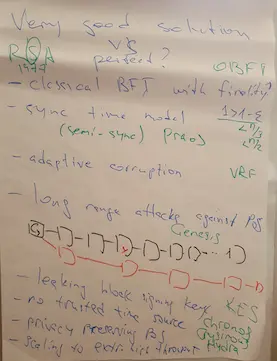 Very good solution
vs
perfect?
RSA
1977
OBFT
- classical BFT with finality?
- sync time model 1>1-ε
(semi-sync) Praos <n/3
<n/2
- adaptive corruption VRF
- long range attacks against PoS
Genesis
G
- leaking block signing keys KES
- no trusted time source Chronos
- privacy preserving PoS
- scaling to extra tips throuput Hydra